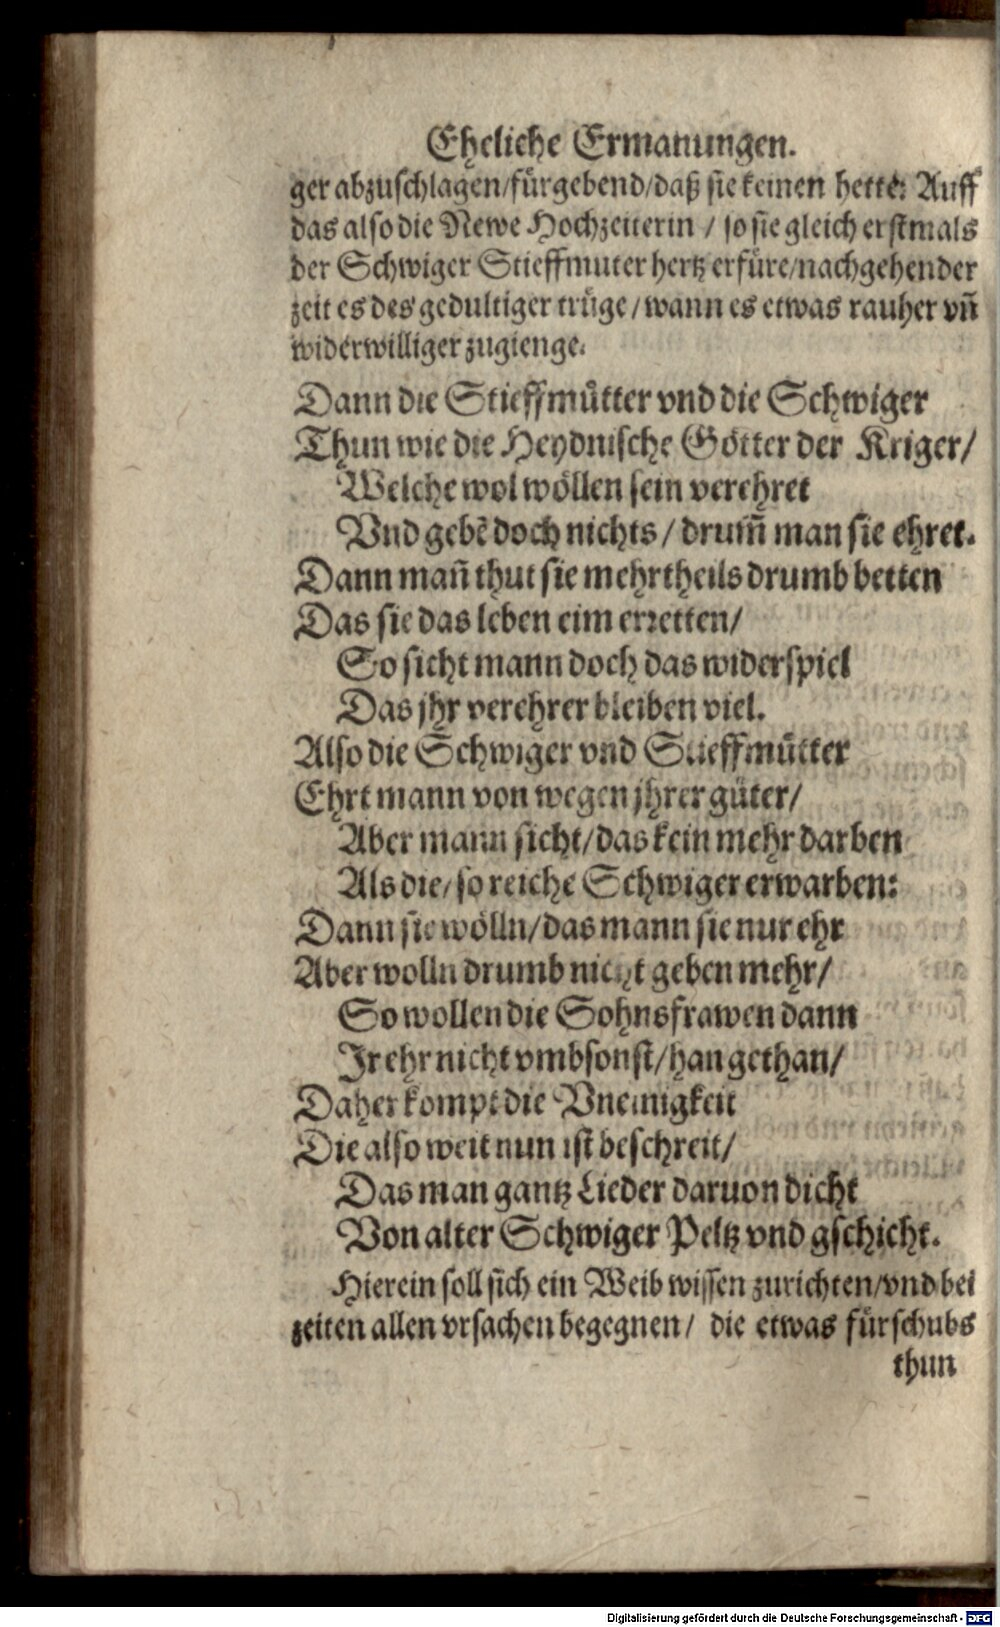 Eheliche Ermanungen.
ger abzuschlagen/fürgebend/daß sie keinen hette: Auff
das also die Newe Hochzeiterin / so sie gleich erstmals
der Schwiger Stieffmuter hertz erfüre/nachgehender
zeit es des gedultiger trüge/wann es etwas rauher vñ
widerwilliger zugienge.
Dann die Stieffmütter vnd die Schwiger
Thun wie die Heydnische Götter der Krieger/
Welche wol wöllen sein verehret
Vnd gebẽ doch nichts / drum̃ man sie ehret.
Dann mañ thut sie mehrtheils drumb betten
Das sie das leben eim erretten/
So sicht mann doch das widerspiel
Das jhr verehrer bleiben viel.
Also die Schwiger vnd Stieffmütter
Ehrt mann von wegen jhrer güter/
Aber mann sicht/das kein mehr darben
Als die/so reiche Schwiger erwarben:
Dann sie wölln/das mann sie nur ehr
Aber wolln drumb nicht geben mehr/
So wollen die Sohnsfrawen dann
Ir ehr nicht vmbsonst/han gethan/
Daher kompt die Vneinigkeit
Die also weit nun ist beschreit/
Das man gantz Lieder daruon dicht
Von alter Schwiger Peltz vnd gschicht.
Hierein soll sich ein Weib wissen zurichten/vnd bei
zeiten allen vrsachen begegnen/ die etwas fürschubs
thun
Digitalisierung gefördert durch die Deutsche Forschungsgemeinschaft - DFG